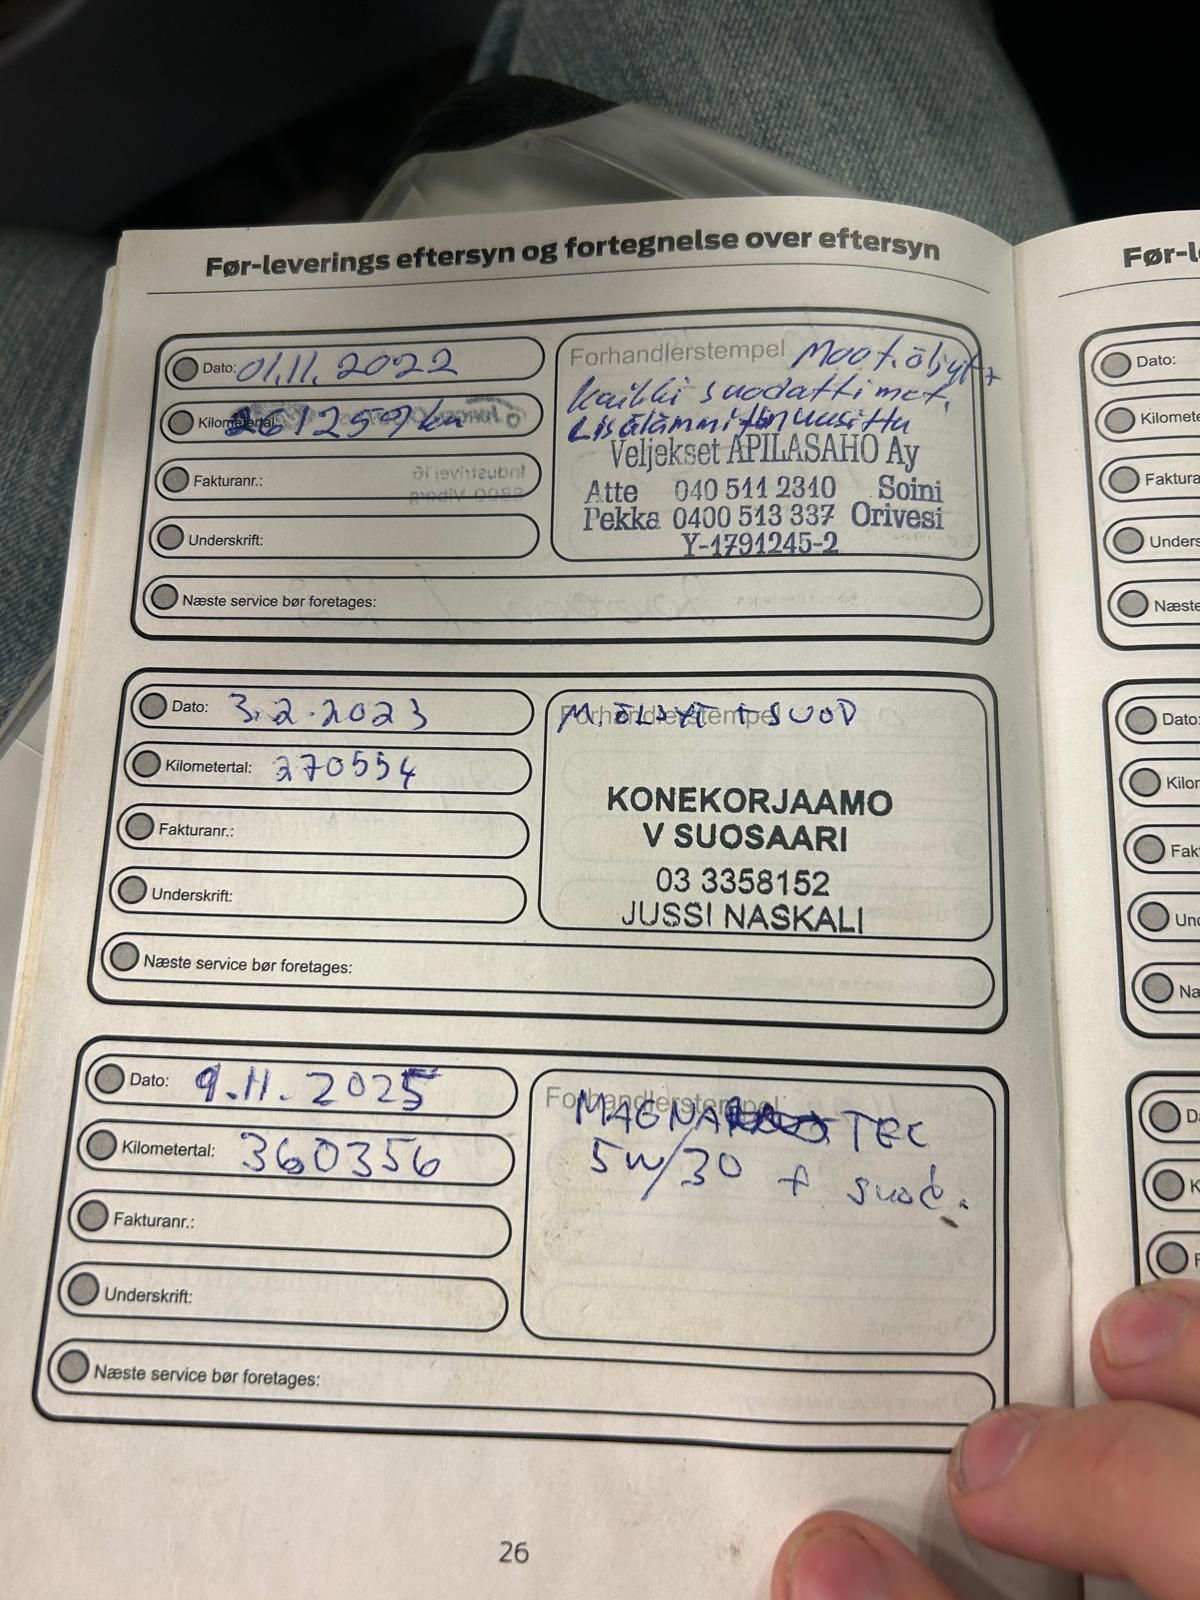 Før-leverings eftersyn og fortegnelse over eftersyn
Før-l
Dato: 01.11. 2022
Kilometertal: 261259 km
Fakturanr.:
Underskrift:
Næste service bør foretages:
Forhandlerstempel Moot.öljyt+
kaikki suodattimet,
Lisälämmitin uusittu
Veljekset APILASAHO Ay
Atte 040 511 2310 Soini
Pekka 0400 513 337 Orivesi
Y-1791245-2
Dato: 3.2.2023
Kilometertal: 270554
Fakturanr.:
Underskrift:
Næste service bør foretages:
Forhandlerstempel
M. ÖLJYT + SUOD
KONEKORJAAMO
V SUOSAARI
03 3358152
JUSSI NASKALI
Dato: 9.11. 2025
Kilometertal: 360356
Fakturanr.:
Underskrift:
Næste service bør foretages:
Forhandlerstempel
MAGNATEC
5W/30 + suod.
26
Dato:
Kilomete
Faktura
Unders
Næste
Dato:
Kilor
Fak
Und
Næ
D
K
F